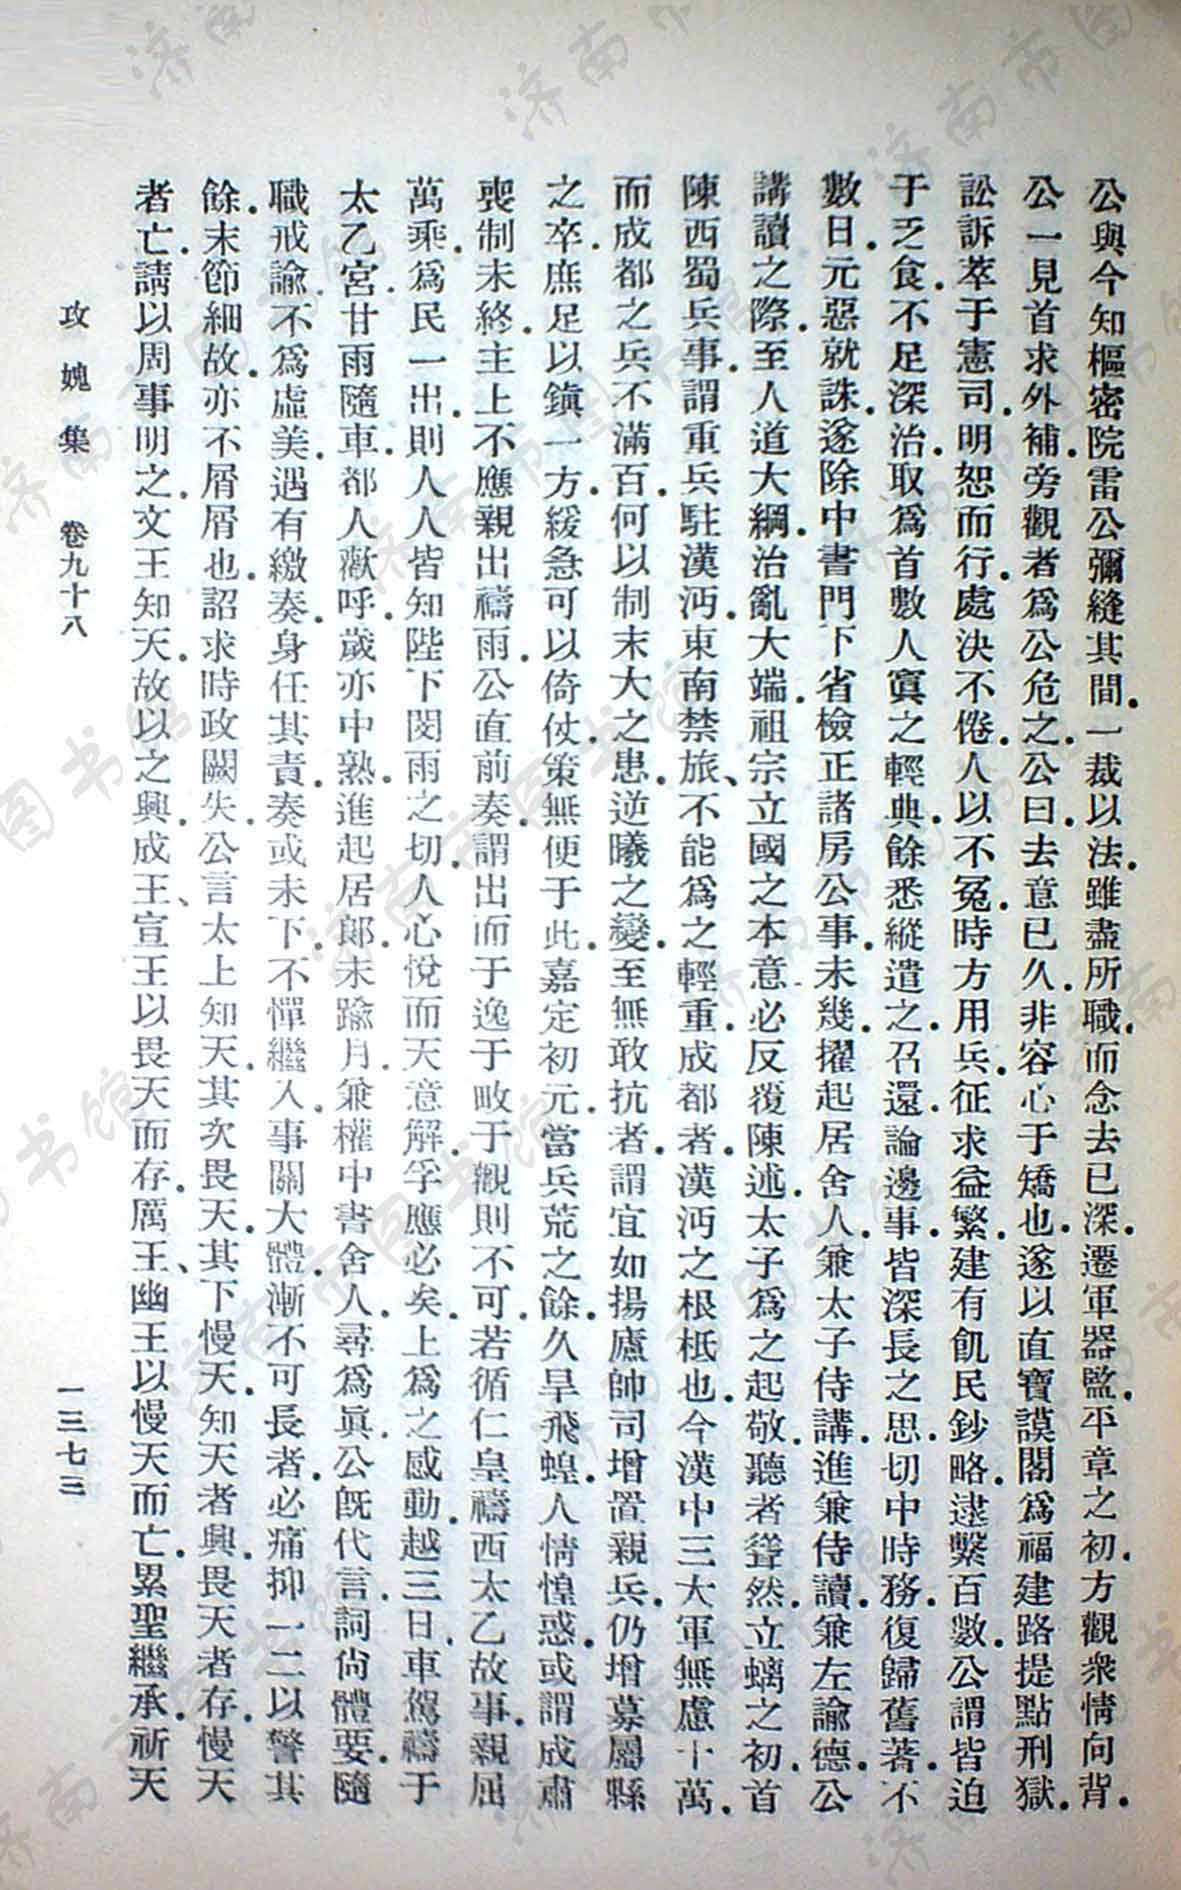 公與今知樞密院雷公彌縫其間。一裁以法。雖盡所職。而念去已深。遷軍器監。平章之初。方觀衆情向背。
公一見首求外補。旁觀者爲公危之。公曰。去意已久。非容心于矯也。遂以直寶謨閣爲福建路提點刑獄。
訟訴萃于憲司。明恕而行。處決不倦。人以不冤。時方用兵。征求益繁。建有飢民鈔略。逮繫百數。公謂皆迫
于乏食。不足深治。取爲首數人寘之輕典。餘悉縱遣之。召還。論邊事。皆深長之思。切中時務。復歸舊著。不
數日。元惡就誅。遂除中書門下省檢正諸房公事。未幾。擢起居舍人。兼太子侍講。進兼侍讀。兼左諭德。公
講讀之際。至人道大綱。治亂大端。祖宗立國之本意。必反覆陳述。太子爲之起敬。聽者聳然。立螭之初。首
陳西蜀兵事。謂重兵駐漢沔。東南禁旅、不能爲之輕重。成都者。漢沔之根柢也。今漢中三大軍無慮十萬。
而成都之兵不滿百。何以制末大之患。逆曦之變。至無敢抗者。謂宜如揚廬帥司增置親兵。仍增募屬縣
之卒。庶足以鎮一方。緩急可以倚仗。策無便于此。嘉定初元。當兵荒之餘。久旱飛蝗。人情惶惑。或謂成肅
喪制未終。主上不應親出禱雨。公直前奏。謂出而于逸于畋于觀則不可。若循仁皇禱西太乙故事。親屈
萬乘。爲民一出。則人人皆知陛下閔雨之切。人心悅而天意解。孚應必矣。上爲之感動。越三日。車駕禱于
太乙宮。甘雨隨車。都人歡呼。歲亦中熟。進起居郎。未踰月。兼權中書舍人。尋爲真。公旣代言。詞尙體要。隨
職戒諭。不爲虛美。遇有繳奏。身任其責。奏或未下。不憚繼入。事關大體。漸不可長者。必痛抑一二以警其
餘。末節細故。亦不屑屑也。詔求時政闕失。公言太上知天。其次畏天。其下慢天。知天者興。畏天者存。慢天
者亡。請以周事明之。文王知天。故以之興。成王、宣王以畏天而存。厲王、幽王以慢天而亡。累聖繼承。祈天
攻媿集 卷九十八 一三七三
济南市图书馆